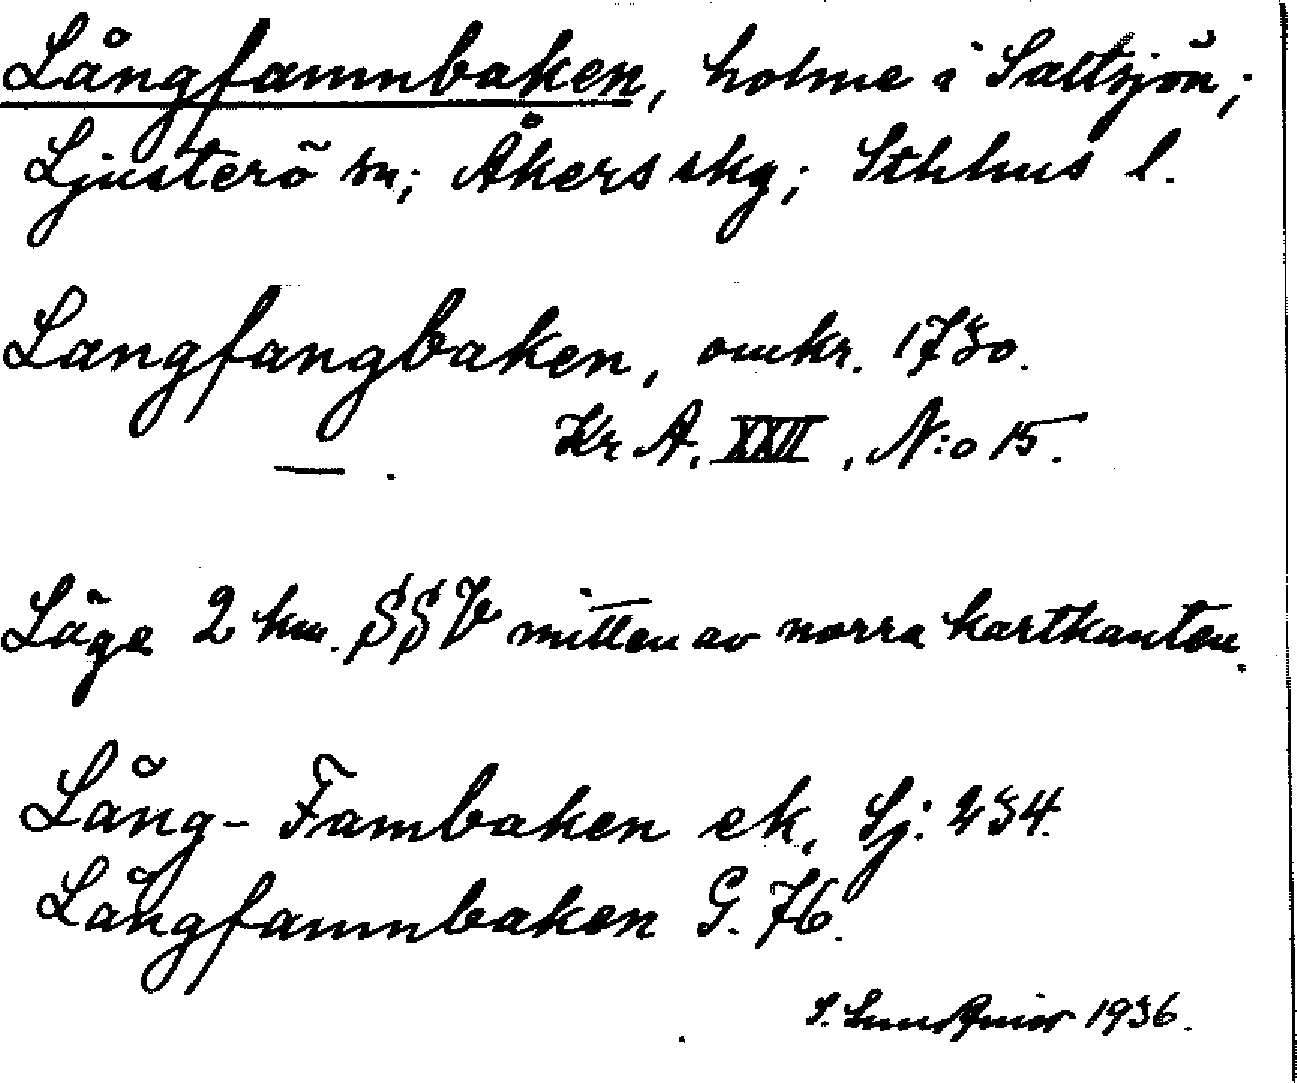 Långfamnbaken, holme i Saltsjön;
Ljusterö sn; Åkers skg; Sthlms l.
Langfangbaken, omkr. 1730.
Kr A. XXII, N:o 15.
— .
Läge 2 km. SSV mitten av norra kartkanten.
Lång-Fambaken ek, Sj: 234.
Långfamnbaken G. 76.
1936.